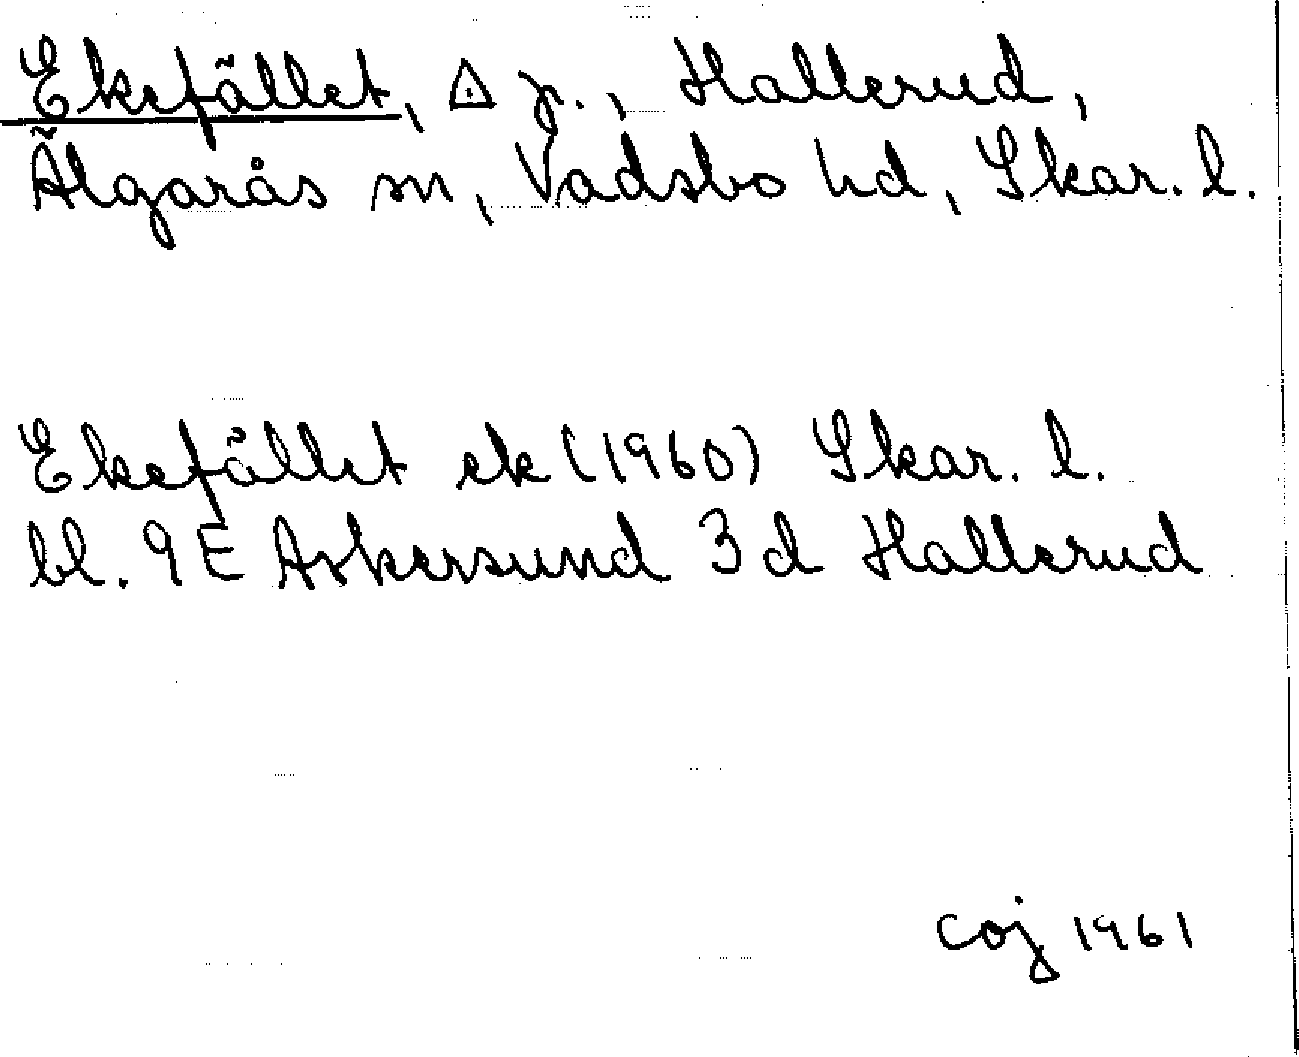 Ekefället, △ p., Hallerud,
Älgarås sn, Vadsbo hd, Skar. l.
Ekefället ek (1960) Skar. l.
bl. 9E Askersund 3d Hallerud
coj 1961